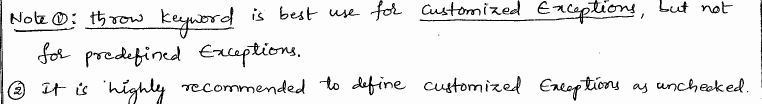 Note ①: throw keyword is best use for customized Exceptions, but not
for predefined Exceptions.
② It is highly recommended to define customized Exceptions as unchecked.